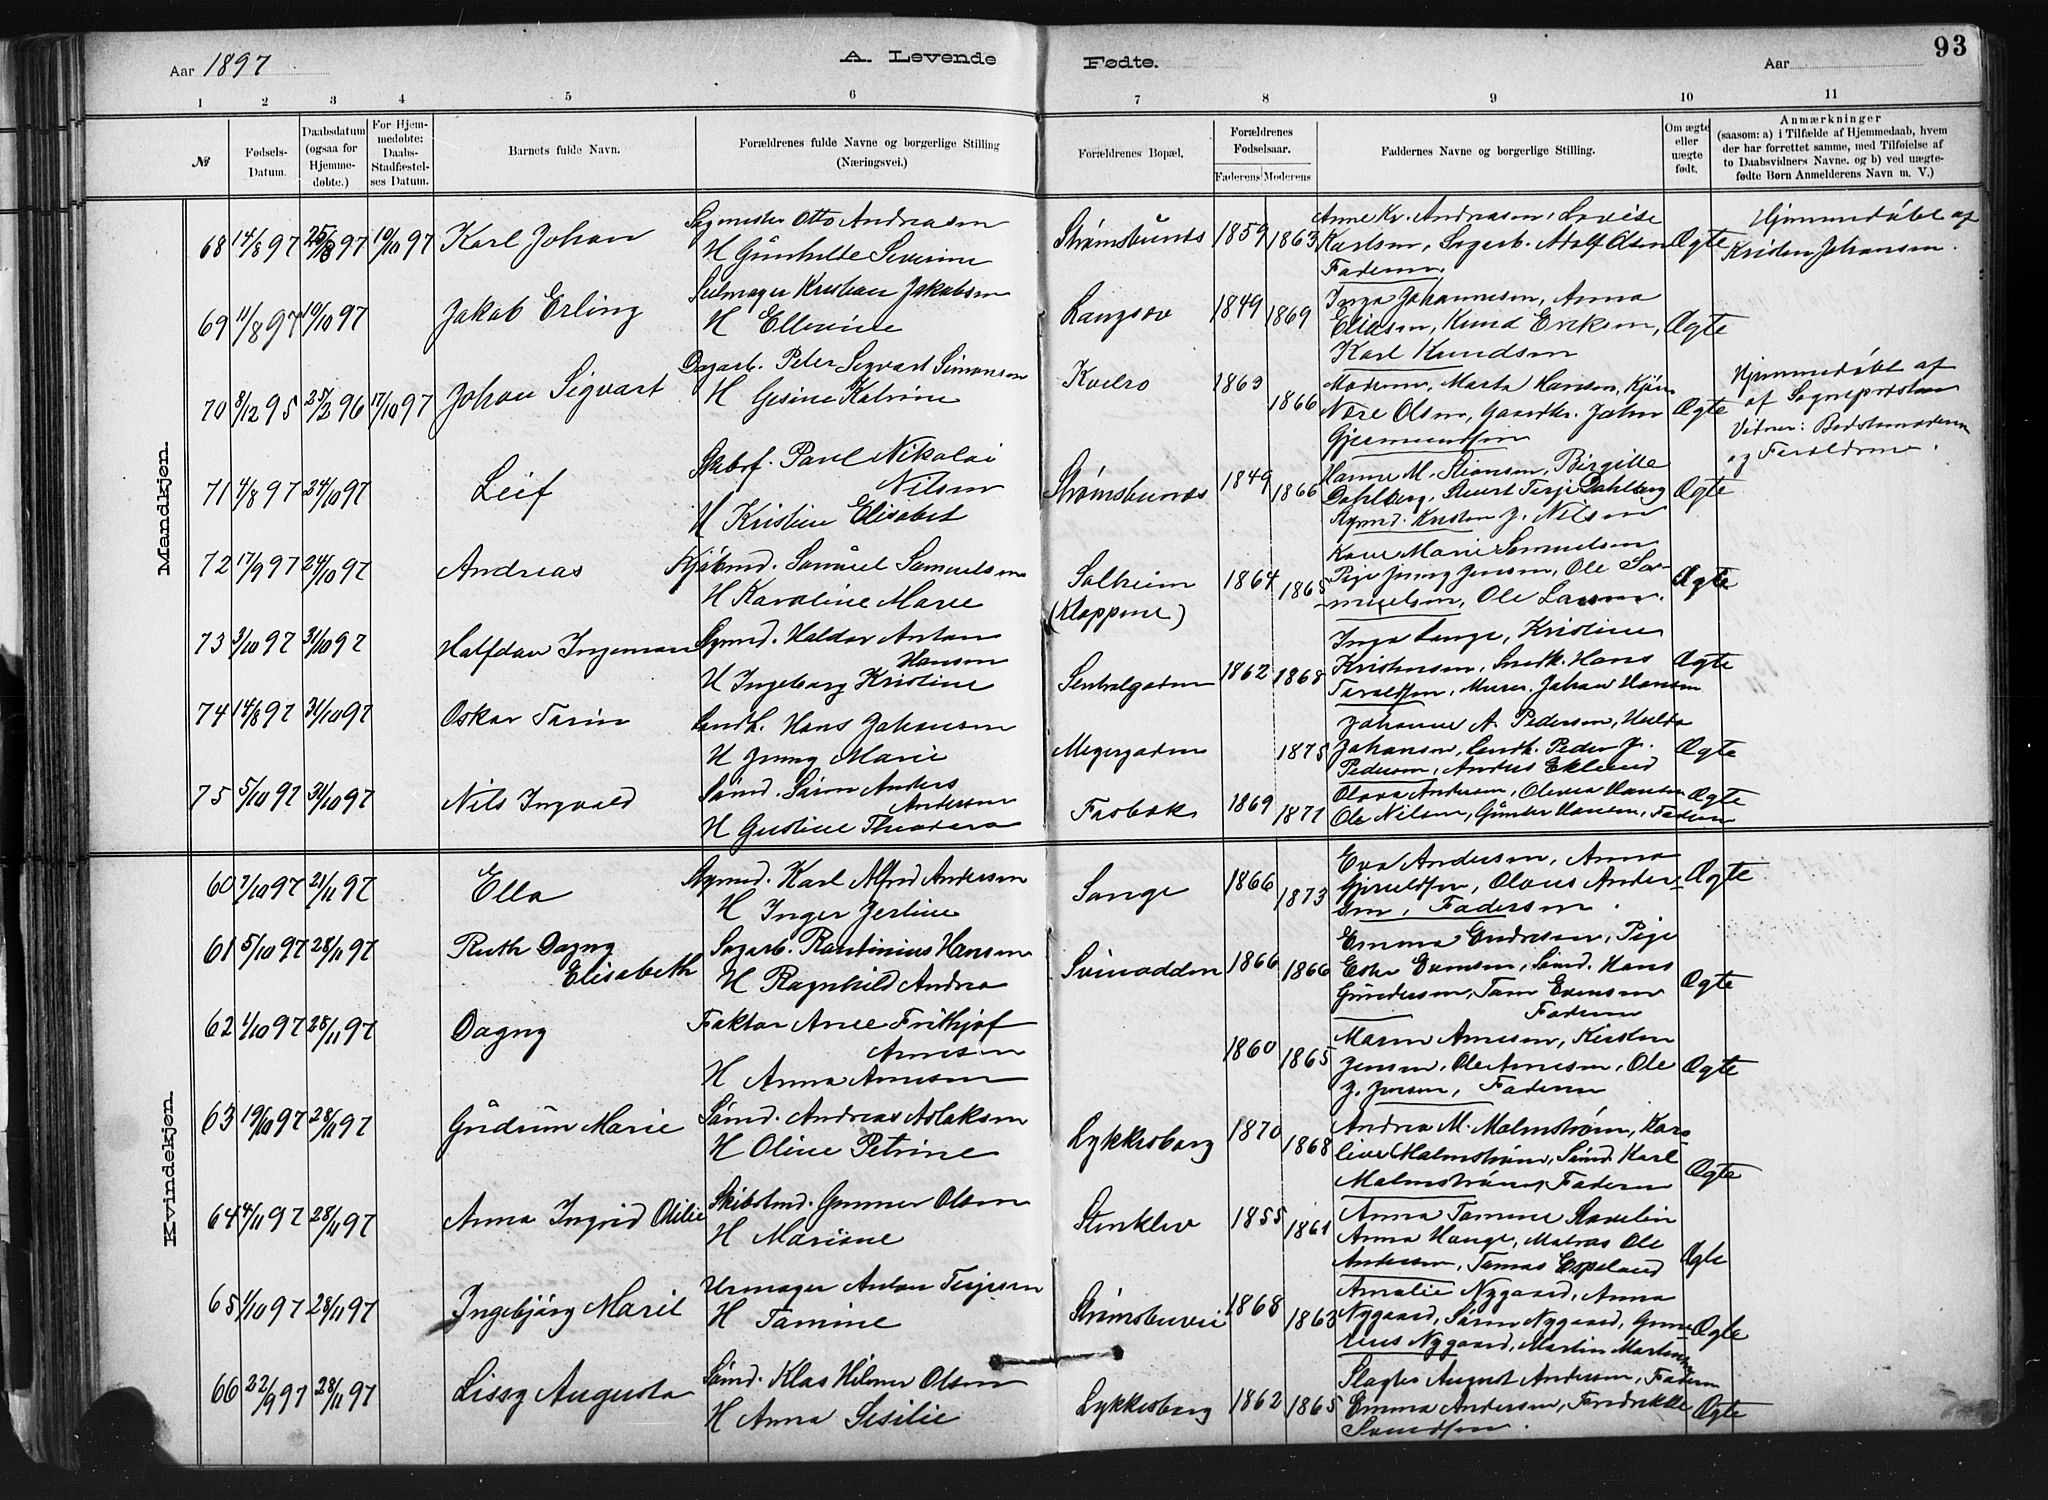 Aar 1897
A. Levende Fødte.
Aar
93
1 2 3 4 5 6 7 8 9 10 11
№
Fødsels-Datum.
Daabsdatum (ogsaa for Hjemme-døbte.)
For Hjem-medøbte: Daabs-Stadfæstel-ses Datum.
Barnets fulde Navn.
Forældrenes fulde Navne og borgerlige Stilling (Næringsvei.)
Forældrenes Bopæl.
Forældrenes Fødselsaar.
Faderens Moderens
Faddernes Navne og borgerlige Stilling.
Om ægte eller uægte født.
Anmærkninger
(saasom: a) i Tilfælde af Hjemmedaab, hvem
der har forrettet samme, med Tilføielse af
to Daabsvidners Navne. og b) ved uægte-
fødte Børn Anmelderens Navn m. V.)
Mandkjøn.
68 14/8 97 97 10/10 97 Karl Johan
Otto Andreasen
H Günhilde Severine
Strømsbunes 1859 1863
Anne Kr. Andreasen, Lovise
Karlsen, Sagarb. Adolf Olsen
Faderen
Ægte
Hjemmedøbt af
Kristen Johansen.
69 11/8 97 19/10 97 Jakob Erling
Seilmager Kristian Jakobsen
H Ellevine
Langsæv 1849 1869
Inga Johannesen, Anna
Eliasen, Knud Eriksen,
Karl Knudsen
Ægte
70 8/12 95 25/2 96 17/10 97 Johan Sigvart
Dagarb. Peter Sigvart Simonsen
H Gesine Katrine
1863 1866
Moderen, Marta Hansen,
Olsen, Gaardbr. John
Gjermundsen
Ægte
Hjemmedøbt af
af Sognepresten
Vidner: Bedstemoderen
og Forældrene.
71 4/8 97 24/10 97 Leif
Skibsf. Paul Nikolai
Nilsen
H Kristine Elisabet
Strømsbunes 1849 1866
Hanne M. Birgitte
Dahlberg, Stuert Terje Dahlberg
Kristen J. Nilsen
Ægte
72 17/9 97 24/10 97 Andreas
Kjøbmd. Samuel Samuelsen
H Karoline Marie
Solheim
(Kloppene)
1864 1865
Marie Samuelsen
Pige Jenny Jensen, Ole Sa-
muelsen, Ole Larsen.
Ægte
73 3/10 97 31/10 97 Halfdan Ingeman
Haldor Anton
Hansen
H Ingeborg Kristine
Sentralgaden 1862 1868
Inga Lange, Kristine
Kristensen, Snedk. Hans
Taraldsen, Murer Johan Hansen
Ægte
74 14/8 97 31/10 97 Oskar Tarin
Landh. Hans Johansen
H Jenny Marie
Meyergaden 1875
Johanne A. Pedersen, Hulda
Johansen, Landh. Peder Jr.
Pedersen, Anders Eklund
Ægte
75 5/10 97 31/10 97 Nils Ingvald
Sømd. Søren Anders
Andersen
H Gustine Theodora
Færbæk 1869 1871
Olava Andersen, Olevia Hansen
Ole Nilsen, Günder Hansen, Faderen
Ægte
Kvindekjøn.
60 7/10 97 21/11 97 Ella
Karl Alfred Andersen
H Inger Jertine
Songe 1866 1873
Eva Andersen, Anna
Gjeruldsen, Olaus Ander-
sen, Faderen.
Ægte
61 5/10 97 28/11 97 Ruth Dagny
Elisabeth
Sagarb. Rantinius Hansen
H Ragnhild Andrea
Svinodden 1866 1866
Emma Endresen, Pige
Ester Evensen, Sømd. Hans
Gündersen, Tom Evensen
Faderen
Ægte
62 1/10 97 28/11 97 Dagny
Faktor Arne Frithjof
Arnesen
H Anna Arnesen
1860 1865
Maren Arnesen, Kirsten
Jensen, Ole Arnesen, Ole
J. Jensen, Faderen
Ægte
63 19/10 97 28/11 97 Gudrün Marie
Sømd. Andreas Aslaksen
H Oline Petrine
Lykkesborg 1870 1868
Andrea M. Malmstrøm, Karo-
line Malmstrøm, Sømd. Karl
Malmstrøm, Faderen
Ægte
64 4/11 97 28/11 97 Anna Ingrid Otilie
Skibstmd. Gunner Olsen
H Marione
Stenklev 1855 1861
Anna Tomine Stavelin
Anna Hauge, Matros Ole
Andersen, Tomas Espeland
Ægte
65 1/10 97 28/11 97 Ingebjørg Marie
Urmager Anton Terjesen
H Tomine
Strømsbuvei 1868 1863
Amalie Nygaard, Anna
Nygaard, Søren Nygaard, Gune-
rius Nygaard, Martin Martinsen
Ægte
66 22/9 97 28/11 97 Lissy Augusta
Sømd. Klas Hilmer Olsen
H Anna Sesilie
Lykkesborg 1862 1865
Slagter August Andersen, Faderen
Emma Andersen, Fredrikke
Svendsen.
Ægte